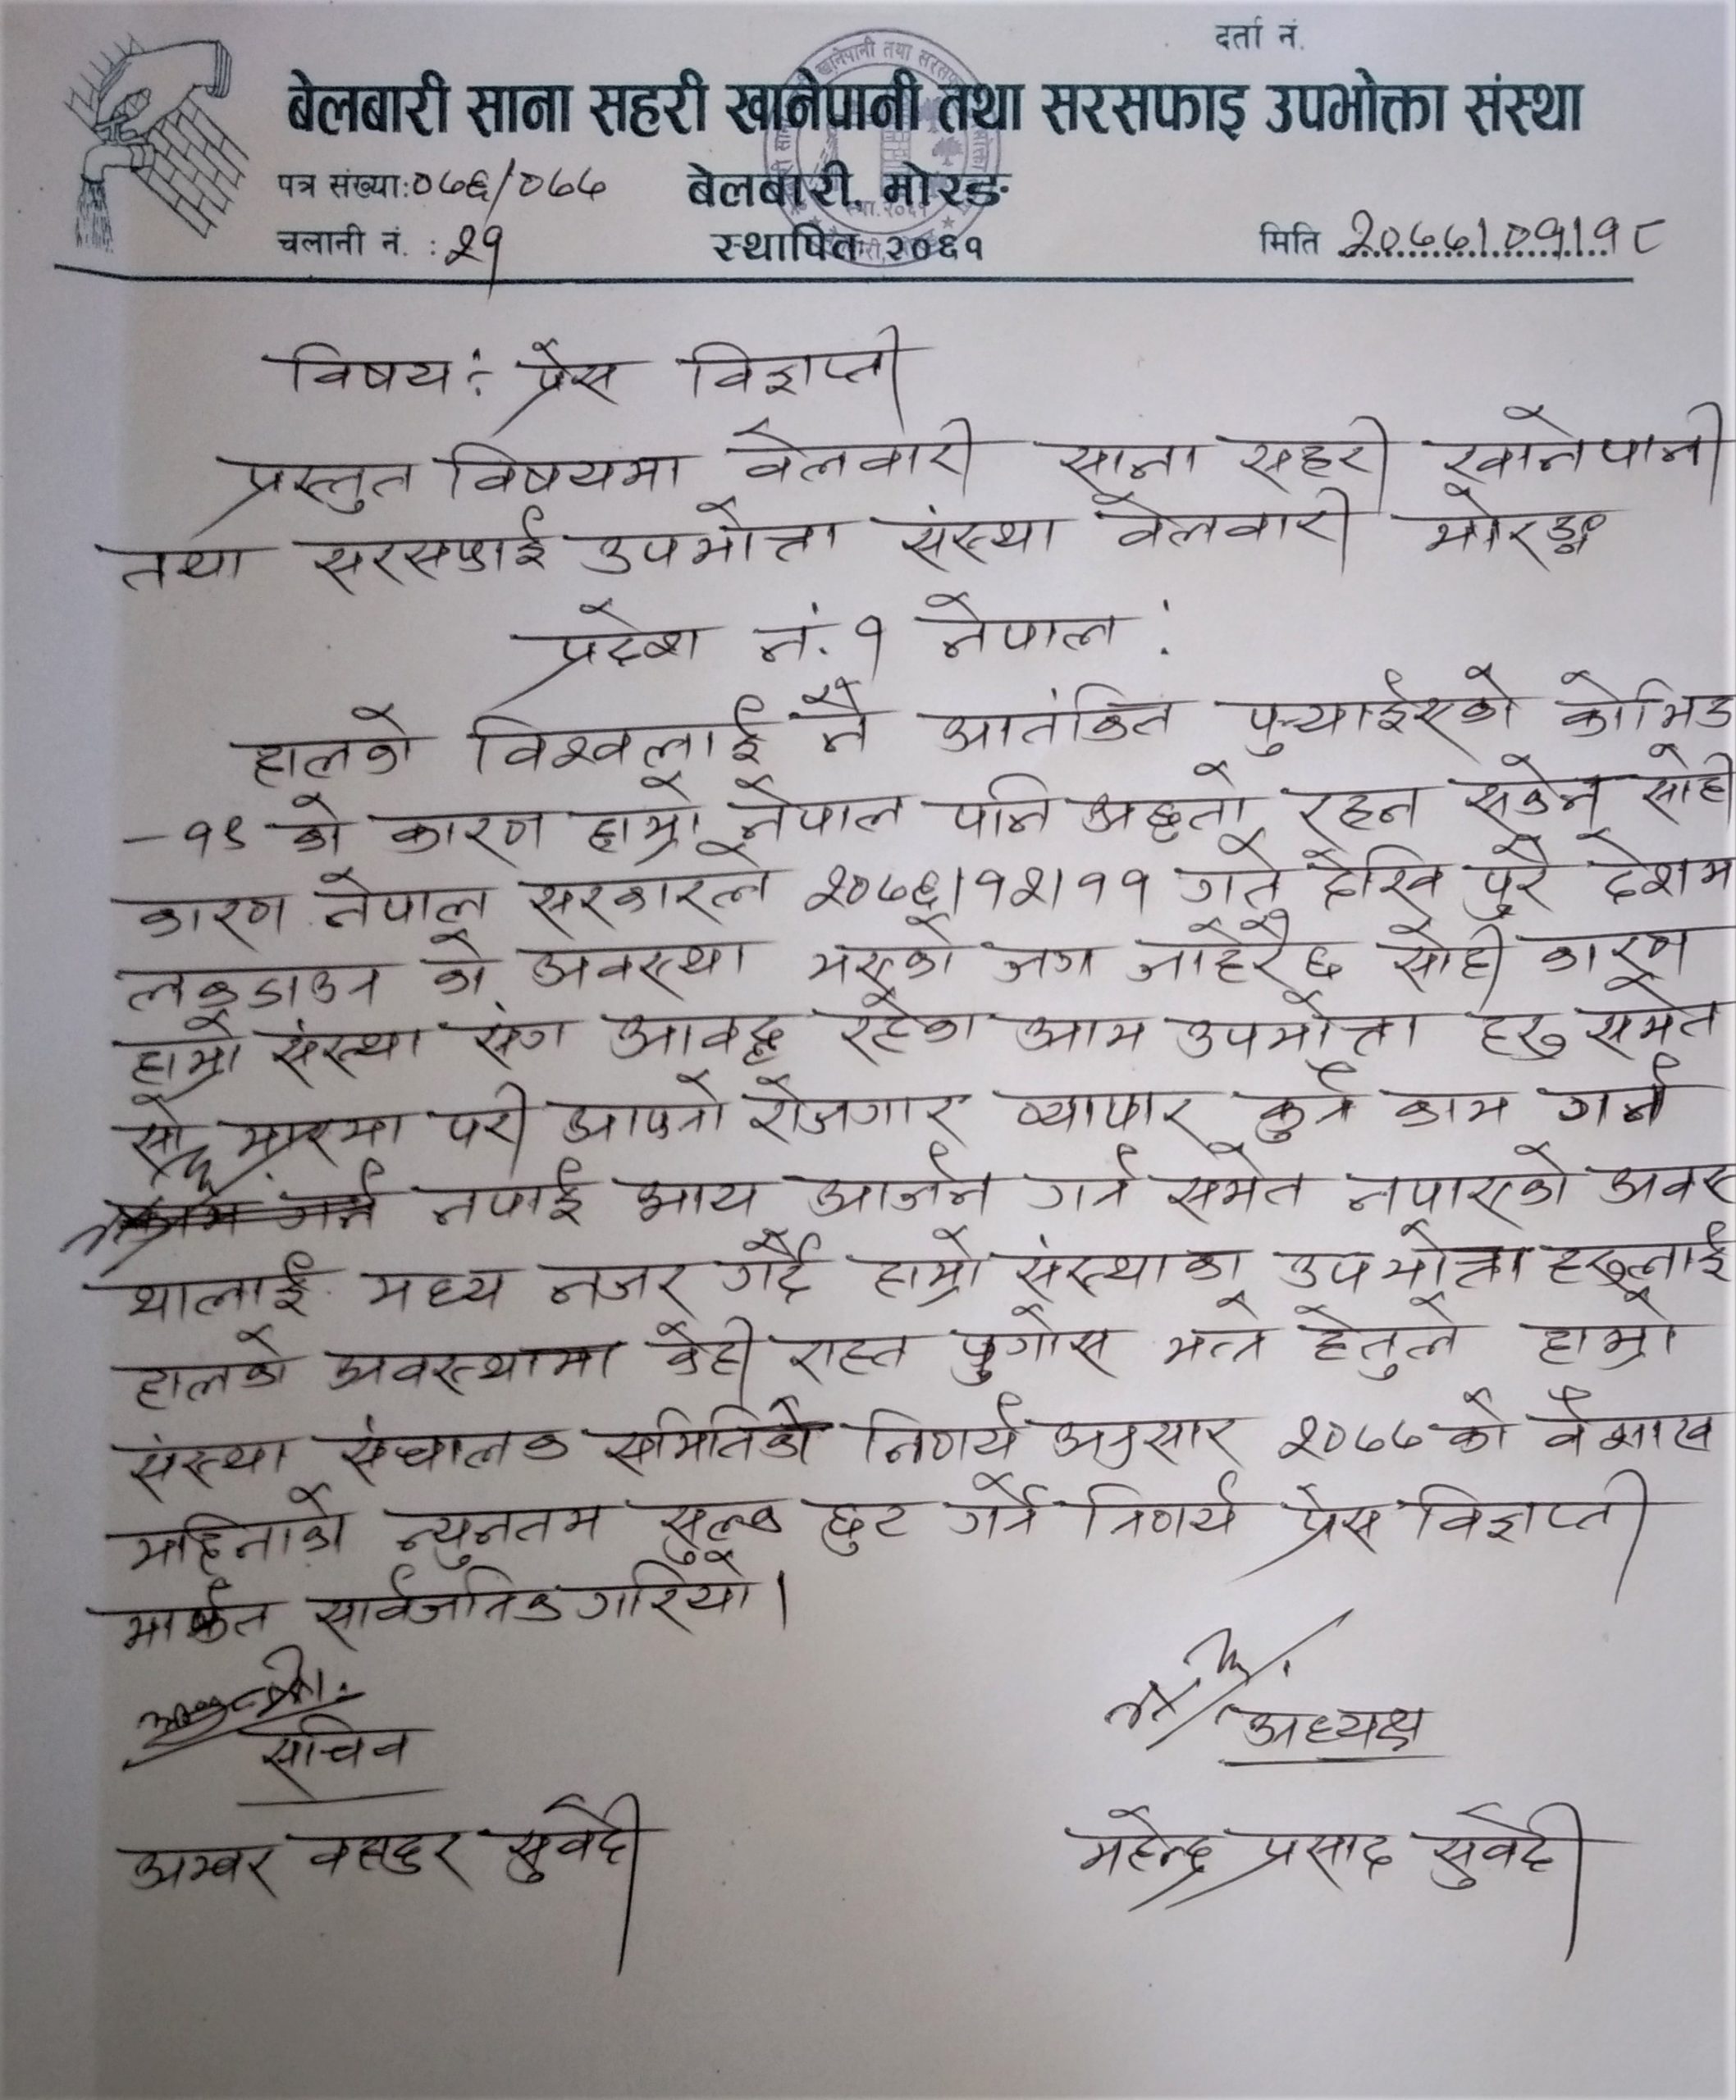 दर्ता नं.
बेलबारी साना सहरी खानेपानी तथा सरसफाइ उपभोक्ता संस्था
पत्र संख्या: ०७६/०७७
बेलबारी, मोरङ
चलानी नं. : २१
स्थापित २०६१
मिति २०७७।०१।१८
विषय : प्रेस विज्ञप्ती
प्रस्तुत विषयमा वेलवारी साना सहरी खानेपानी
तथा सरसफाई उपभोत्ता संस्था वेलवारी मोरङ्ग
प्रदेश नं. १ नेपाल :
हालको विश्वलाई नै आतंकित पुऱ्याईएको कोभिड
-१९ को कारण हाम्रो नेपाल पनि अछुतो रहन सकेन सोही
कारण नेपाल सरकारले २०७६।१२।११ गते देखि पुरै देशम
लकडाउन को अवस्था भएको जग जाहेरै छ सोही कारण
हाम्रो संस्था संग आवद्ध रहेका आम उपभोत्ता हरु समेत
मारमा परी आफ्नो रोजगार व्यापार कुनै काम गर्न
नपाई आय आर्जन गर्न समेत नपाएको अवस्
थालाई मध्य नजर गर्दै हाम्रो संस्थाका उपभोत्ता हरुलाई
हालको अवस्थामा केही राहत पुगोस भन्ने हेतुले हाम्रो
संस्था संचालक समितिको निर्णय अनुसार २०७७ को वैशाख
महिनाको न्युनतम सुल्क छुट गर्ने निर्णय प्रेस विज्ञप्ती
मार्फत सार्वजनिक गरियो।
सचिव
अध्यक्ष
अम्वर वहादुर सुवेदी
महेन्द्र प्रसाद सुवेदी